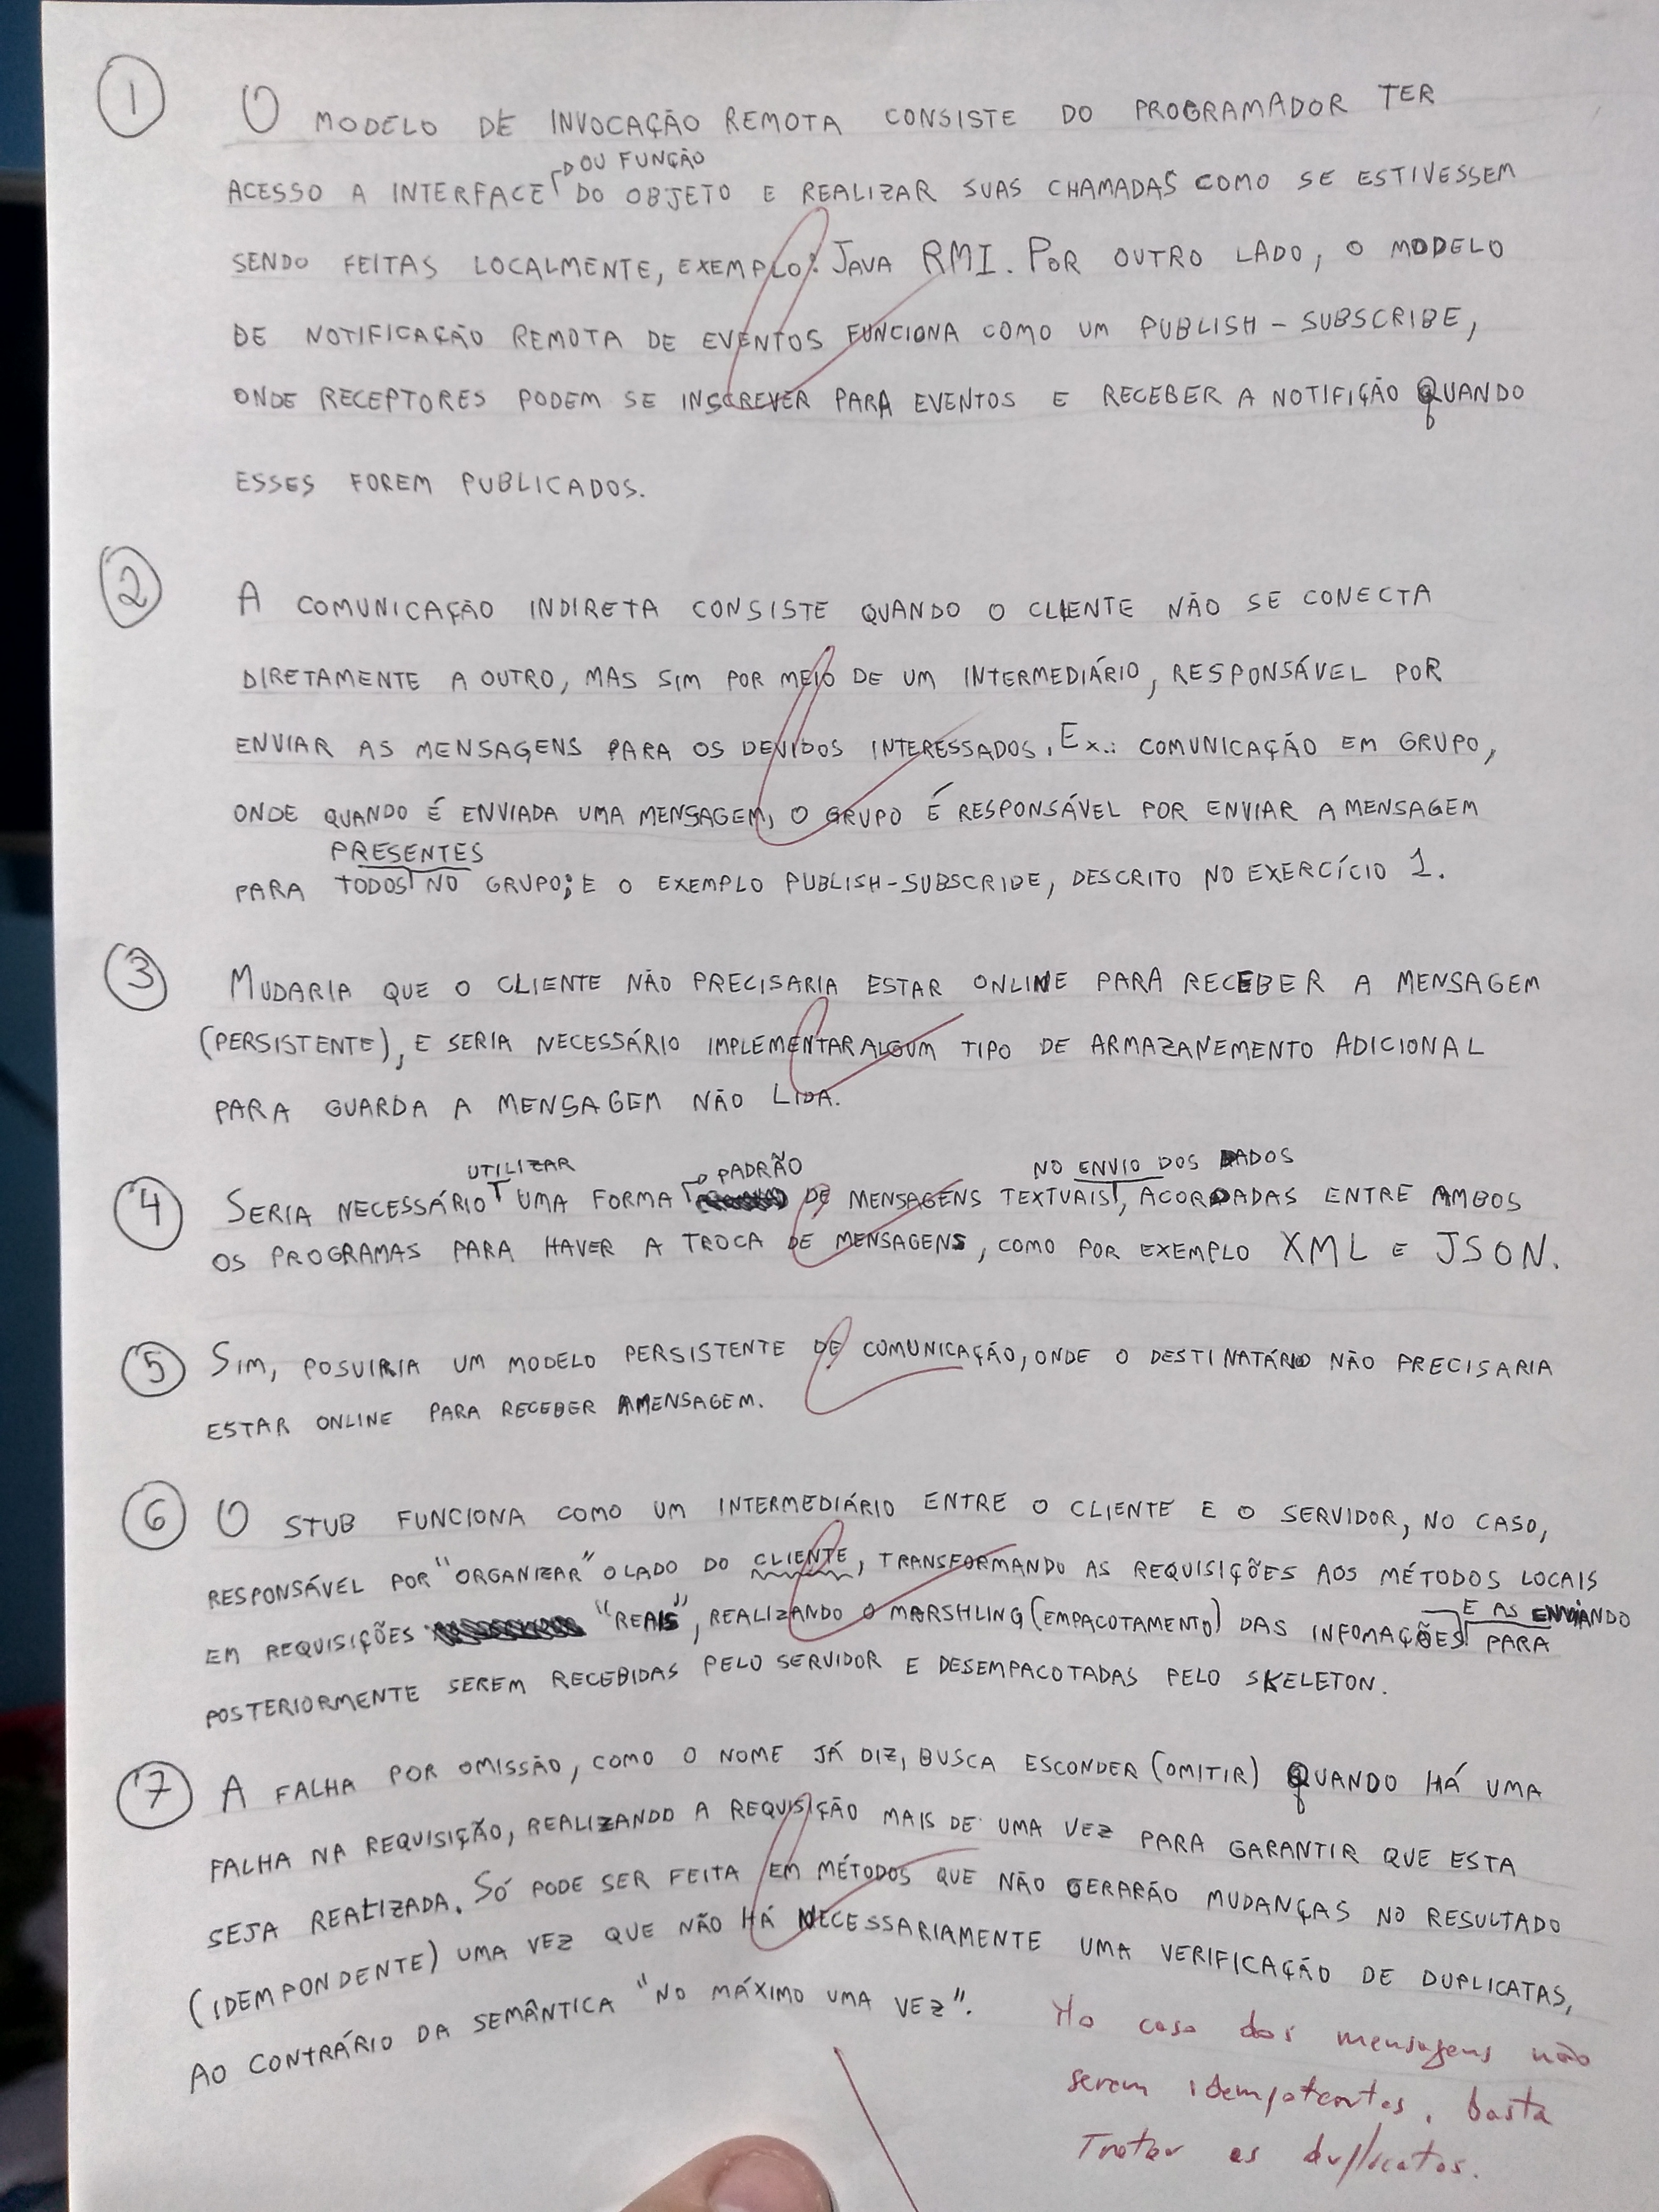 1 O MODELO DE INVOCAÇÃO REMOTA CONSISTE DO PROGRAMADOR TER
OU FUNÇÃO
ACESSO A INTERFACE DO OBJETO E REALIZAR SUAS CHAMADAS COMO SE ESTIVESSEM
SENDO FEITAS LOCALMENTE, EXEMPLO: JAVA RMI. POR OUTRO LADO, O MODELO
DE NOTIFICAÇÃO REMOTA DE EVENTOS FUNCIONA COMO UM PUBLISH-SUBSCRIBE,
ONDE RECEPTORES PODEM SE INSCREVER PARA EVENTOS E RECEBER A NOTIFIÇÃO QUANDO
ESSES FOREM PUBLICADOS.
2 A COMUNICAÇÃO INDIRETA CONSISTE QUANDO O CLIENTE NÃO SE CONECTA
DIRETAMENTE A OUTRO, MAS SIM POR MEIO DE UM INTERMEDIÁRIO, RESPONSÁVEL POR
ENVIAR AS MENSAGENS PARA OS DEVIDOS INTERESSADOS. EX.: COMUNICAÇÃO EM GRUPO,
ONDE QUANDO É ENVIADA UMA MENSAGEM, O GRUPO É RESPONSÁVEL POR ENVIAR A MENSAGEM
PRESENTES
PARA TODOS NO GRUPO; E O EXEMPLO PUBLISH-SUBSCRIBE, DESCRITO NO EXERCÍCIO 1.
3 MUDARIA QUE O CLIENTE NÃO PRECISARIA ESTAR ONLINE PARA RECEBER A MENSAGEM
(PERSISTENTE), E SERIA NECESSÁRIO IMPLEMENTAR ALGUM TIPO DE ARMAZANEMENTO ADICIONAL
PARA GUARDA A MENSAGEM NÃO LIDA.
UTILIZAR PADRÃO NO ENVIO DOS DADOS
4 SERIA NECESSÁRIO UMA FORMA DE MENSAGENS TEXTUAIS, ACORDADAS ENTRE AMBOS
OS PROGRAMAS PARA HAVER A TROCA DE MENSAGENS, COMO POR EXEMPLO XML E JSON.
5 SIM, POSUIRIA UM MODELO PERSISTENTE DE COMUNICAÇÃO, ONDE O DESTINATÁRIO NÃO PRECISARIA
ESTAR ONLINE PARA RECEBER A MENSAGEM.
6 O STUB FUNCIONA COMO UM INTERMEDIÁRIO ENTRE O CLIENTE E O SERVIDOR, NO CASO,
RESPONSÁVEL POR "ORGANIZAR" O LADO DO CLIENTE, TRANSFORMANDO AS REQUISIÇÕES AOS MÉTODOS LOCAIS
E AS ENVIANDO
EM REQUISIÇÕES "REAIS", REALIZANDO O MARSHLING (EMPACOTAMENTO) DAS INFOMAÇÕES PARA
POSTERIORMENTE SEREM RECEBIDAS PELO SERVIDOR E DESEMPACOTADAS PELO SKELETON.
7 A FALHA POR OMISSÃO, COMO O NOME JÁ DIZ, BUSCA ESCONDER (OMITIR) QUANDO HÁ UMA
FALHA NA REQUISIÇÃO, REALIZANDO A REQUISIÇÃO MAIS DE UMA VEZ PARA GARANTIR QUE ESTA
SEJA REALIZADA. SÓ PODE SER FEITA EM MÉTODOS QUE NÃO GERARÃO MUDANÇAS NO RESULTADO
(IDEMPONDENTE) UMA VEZ QUE NÃO HÁ NECESSARIAMENTE UMA VERIFICAÇÃO DE DUPLICATAS,
AO CONTRÁRIO DA SEMÂNTICA "NO MÁXIMO UMA VEZ".
No caso das mensagens não
serem idempotentes, basta
Tratar as duplicatas.